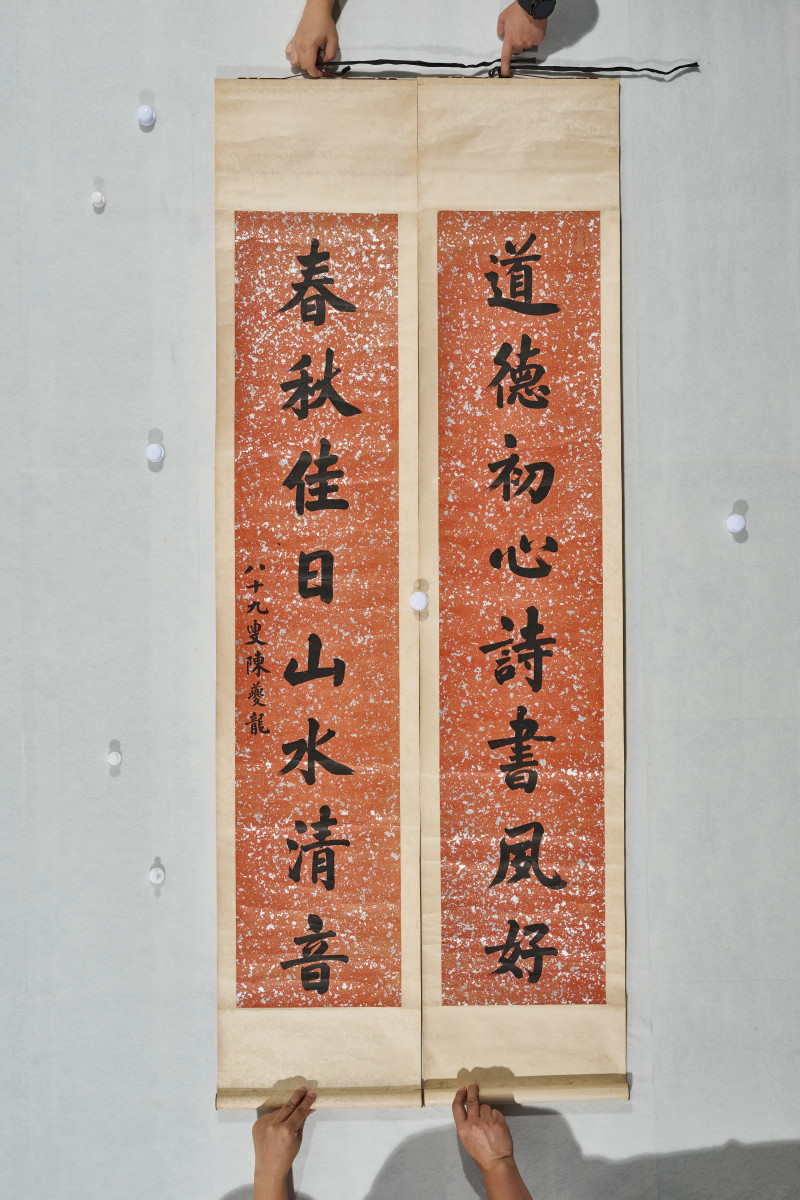 道德初心詩書夙好
春秋佳日山水清音
八十九叟陳夔龍